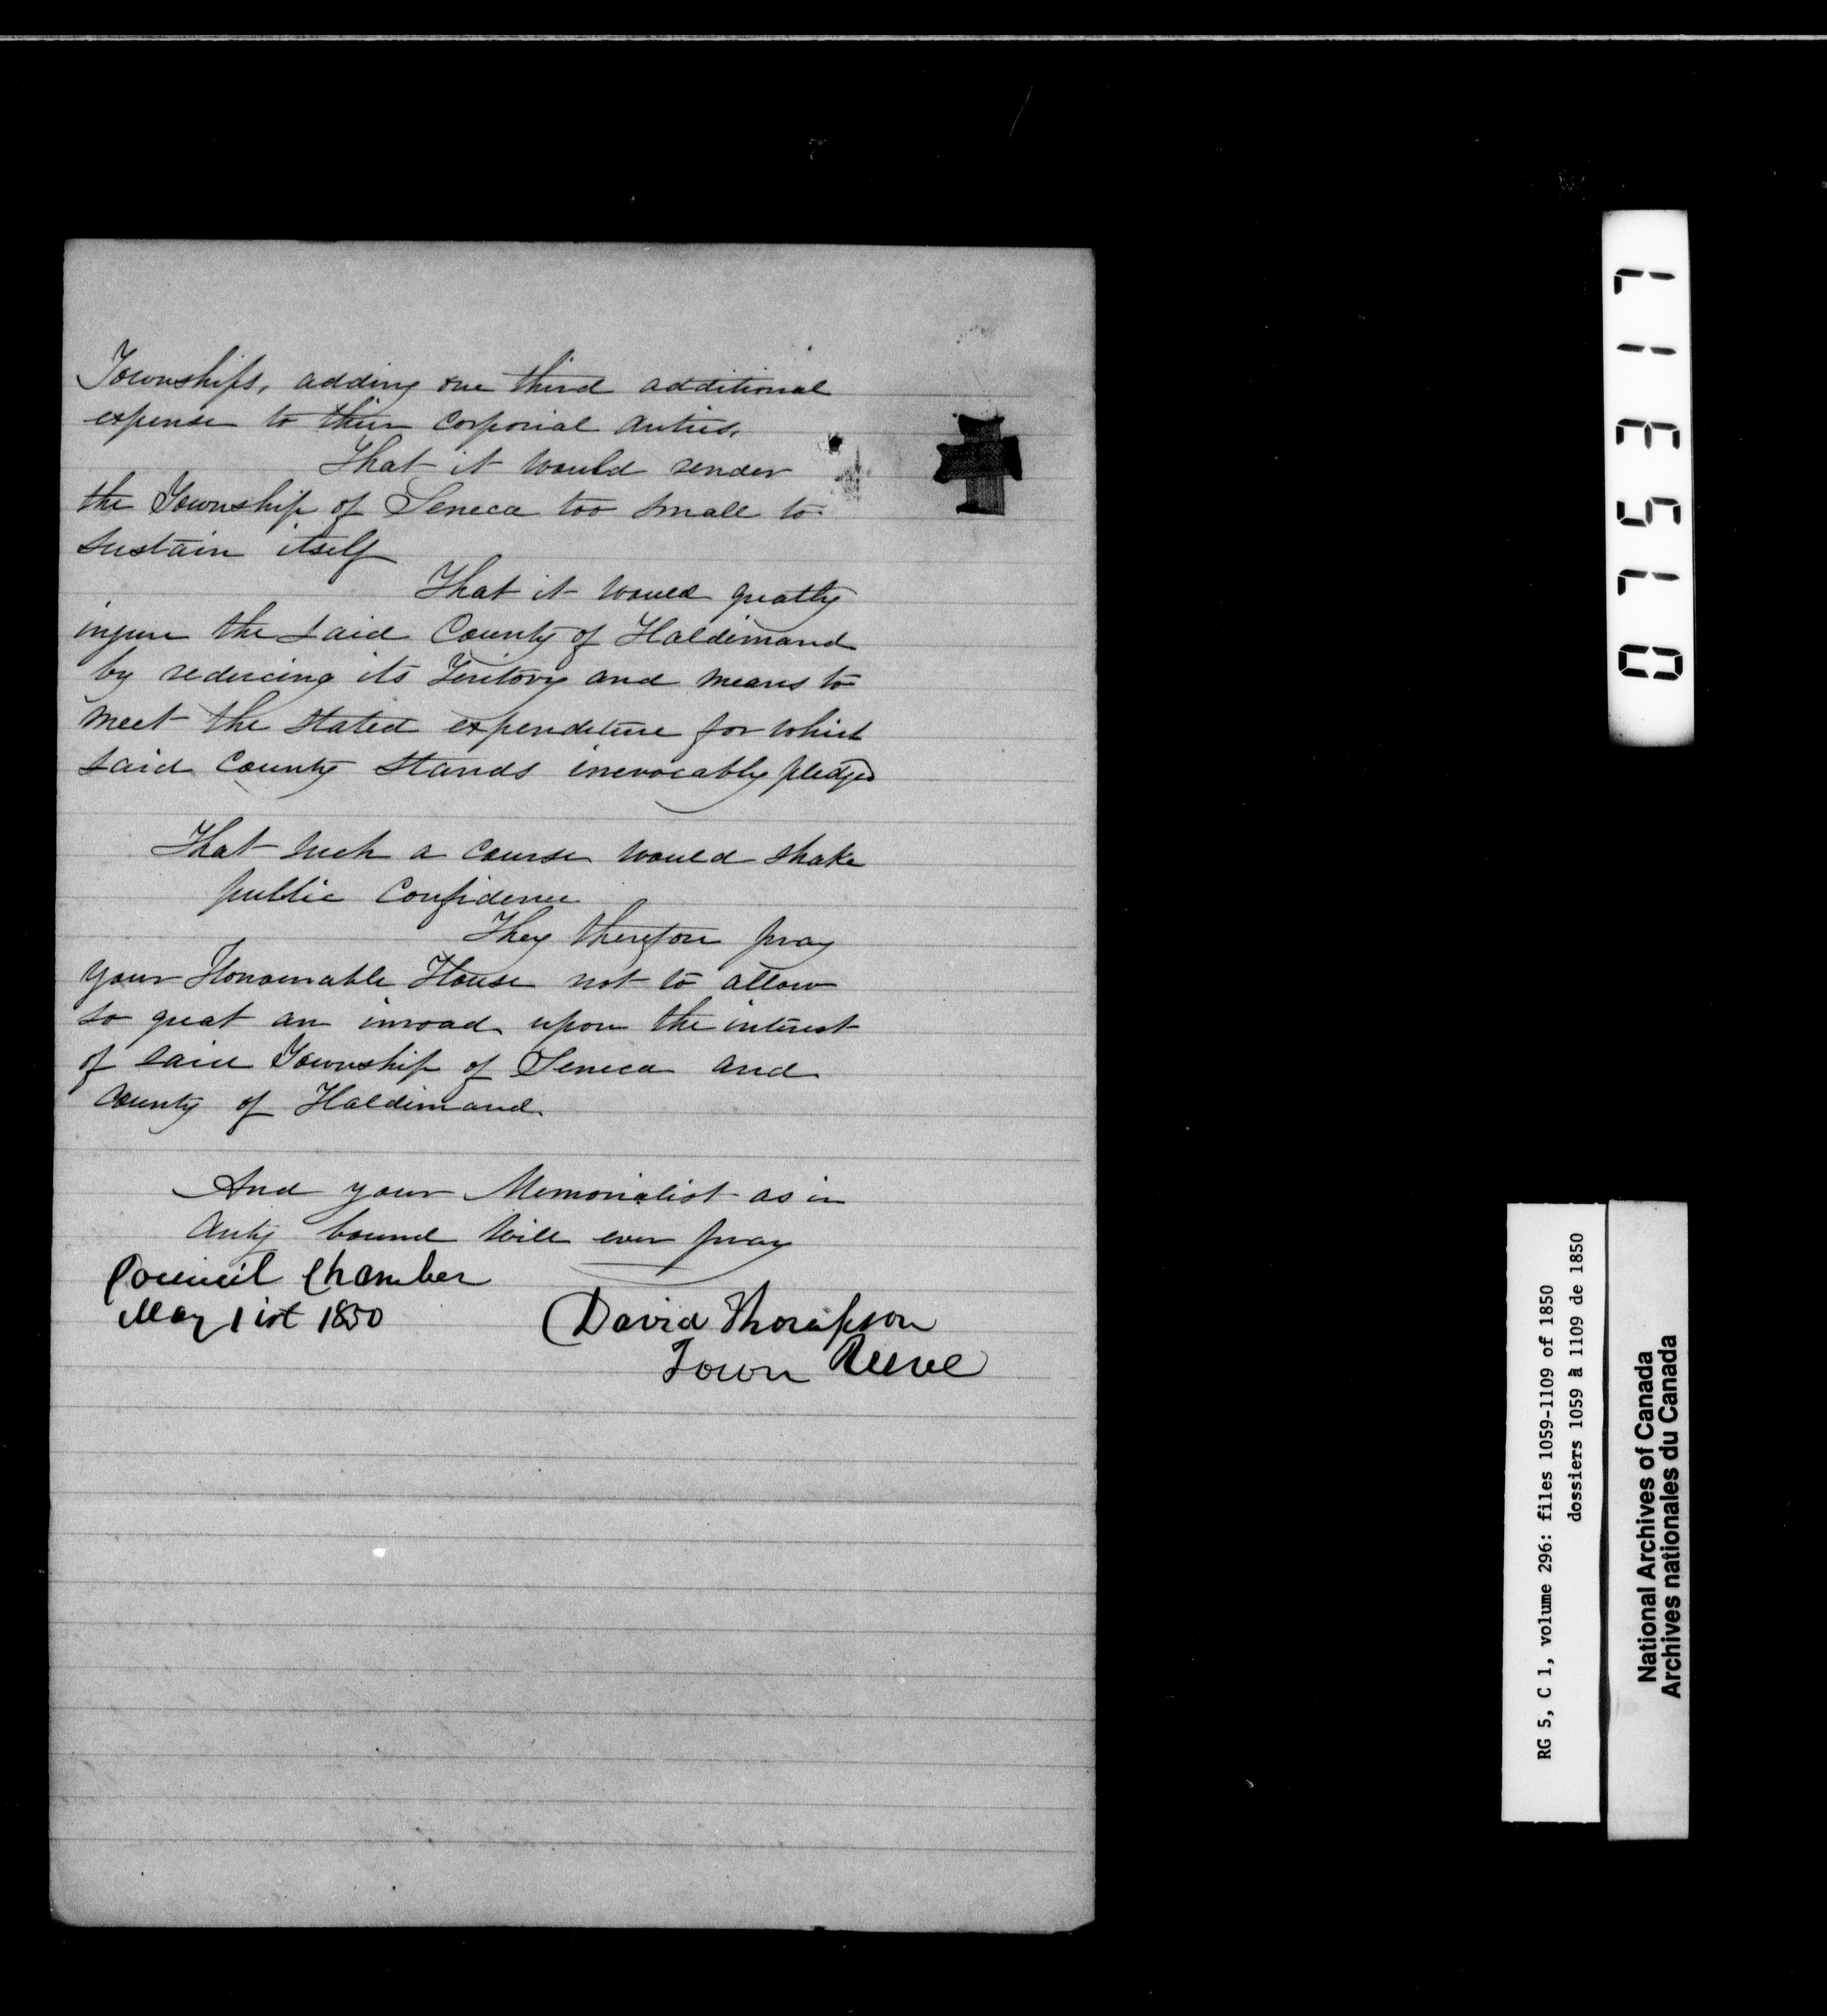 Townships, adding one third additional
expense to their corporial duties.
That it would render
the Township of Seneca too small to
sustain itself
That it would greatly
injure the said County of Haldimand
by reducing its Teritory and means to
meet the stated expenditure for which
said County stands irrevocably pledged
That such a course would shake
public Confidence
They therefore pray
your Honourable House not to allow
so great an inroad upon the interest
of said Township of Seneca and
County of Haldimand.
And your Memorialist as in
duty bound will ever pray
Council Chamber
May 1 1850
David Thompson
Town Reeve
073517
RG 5, C 1, volume 296: files 1059-1109 of 1850
dossiers 1059 à 1109 de 1850
National Archives of Canada
Archives nationales du Canada